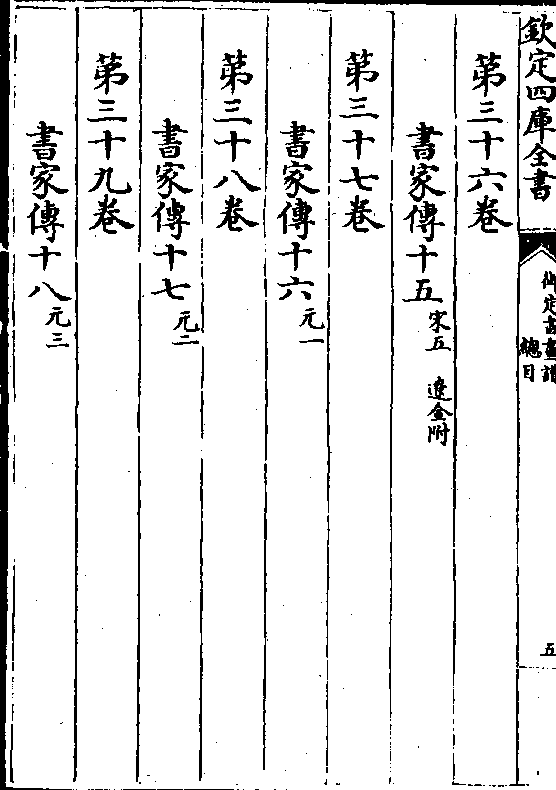 欽定四庫全書
御定書畫譜
總目
五
第三十六卷
書家傳十五宋五 遼金附
第三十七卷
書家傳十六元一
第三十八卷
書家傳十七元二
第三十九卷
書家傳十八元三